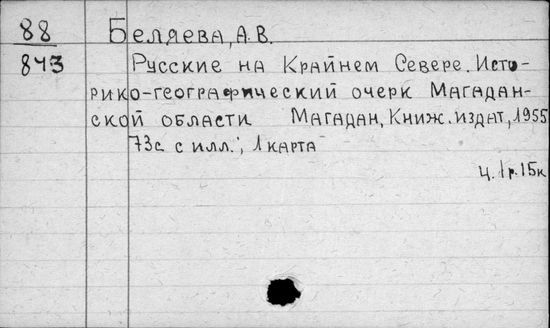 88 Беляева, А.В.
843 Русские на Крайнем Севере. Исто-
рико-географический очерк Магадан-
ской области Магадан, Книж. издат, 1955
73с. с илл.; 1 карта
ц. 1р.15к